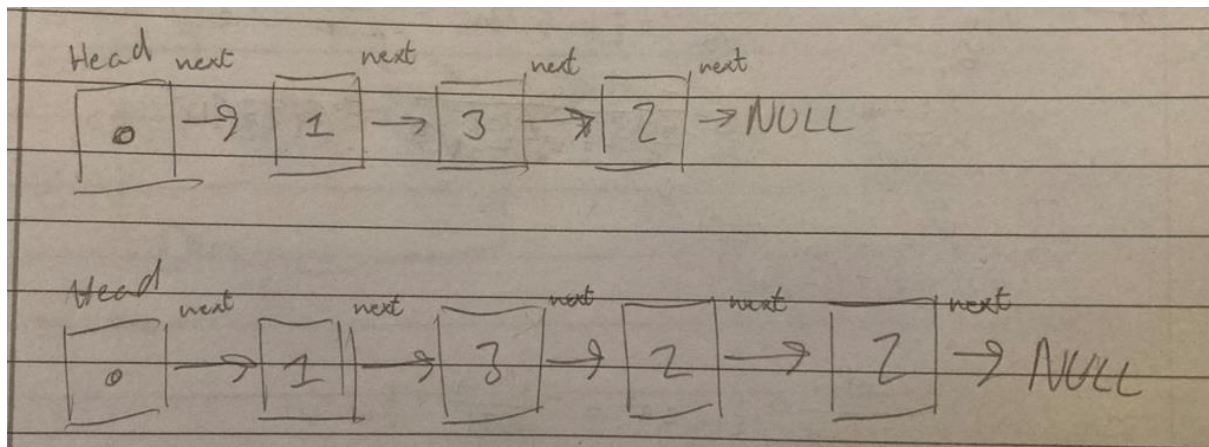 Head next next next next
0 → 1 → 3 → 2 → NULL
Head next next next next next
0 → 1 → 3 → 2 → 2 → NULL